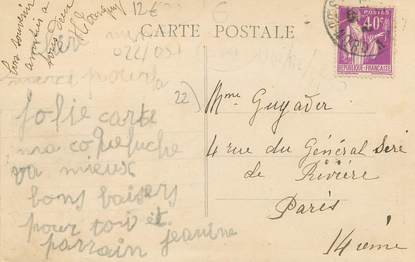 Bon souvenir
12€
CARTE POSTALE
022/051
merci pour ta
jolie carte
ma coqueluche
va mieux
bons baisers
pour toi et
parrain jeanine
22)
POSTES
40c
REPUBLIQUE FRANÇAISE
Mme Guyader
4 rue du Général Seré
de Rivière
Paris
14ième